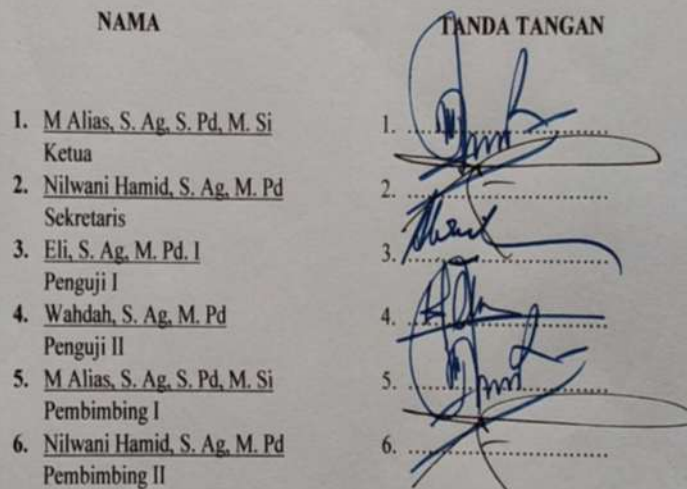 NAMA TANDA TANGAN
1. M Alias, S. Ag, S. Pd, M. Si 1. ..........................................
Ketua
2. Nilwani Hamid, S. Ag, M. Pd 2. ..........................................
Sekretaris
3. Eli, S. Ag, M. Pd. I 3. ..........................................
Penguji I
4. Wahdah, S. Ag, M. Pd 4. ..........................................
Penguji II
5. M Alias, S. Ag, S. Pd, M. Si 5. ..........................................
Pembimbing I
6. Nilwani Hamid, S. Ag, M. Pd 6. ..........................................
Pembimbing II